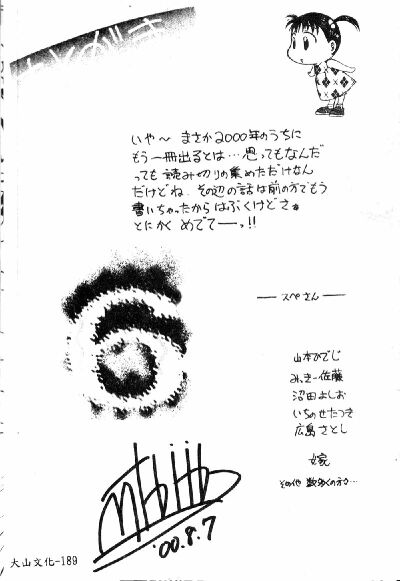 あとがき
いや〜 まさか2000年のうちに
もう一冊出るとは…思ってもなんだ
っても 読み切りの集めただけなん
だけどね. その辺の話は前の方でもう
書いちゃったからはぶくけどさぁ
とにかく めでてーっ!!
── スペさん ──
山本ひでじ
みっきー佐藤
沼田よしお
いちのせたつき
広島さとし
嫁
その他 数多くの方々…
'00.8.7
大山文化-189